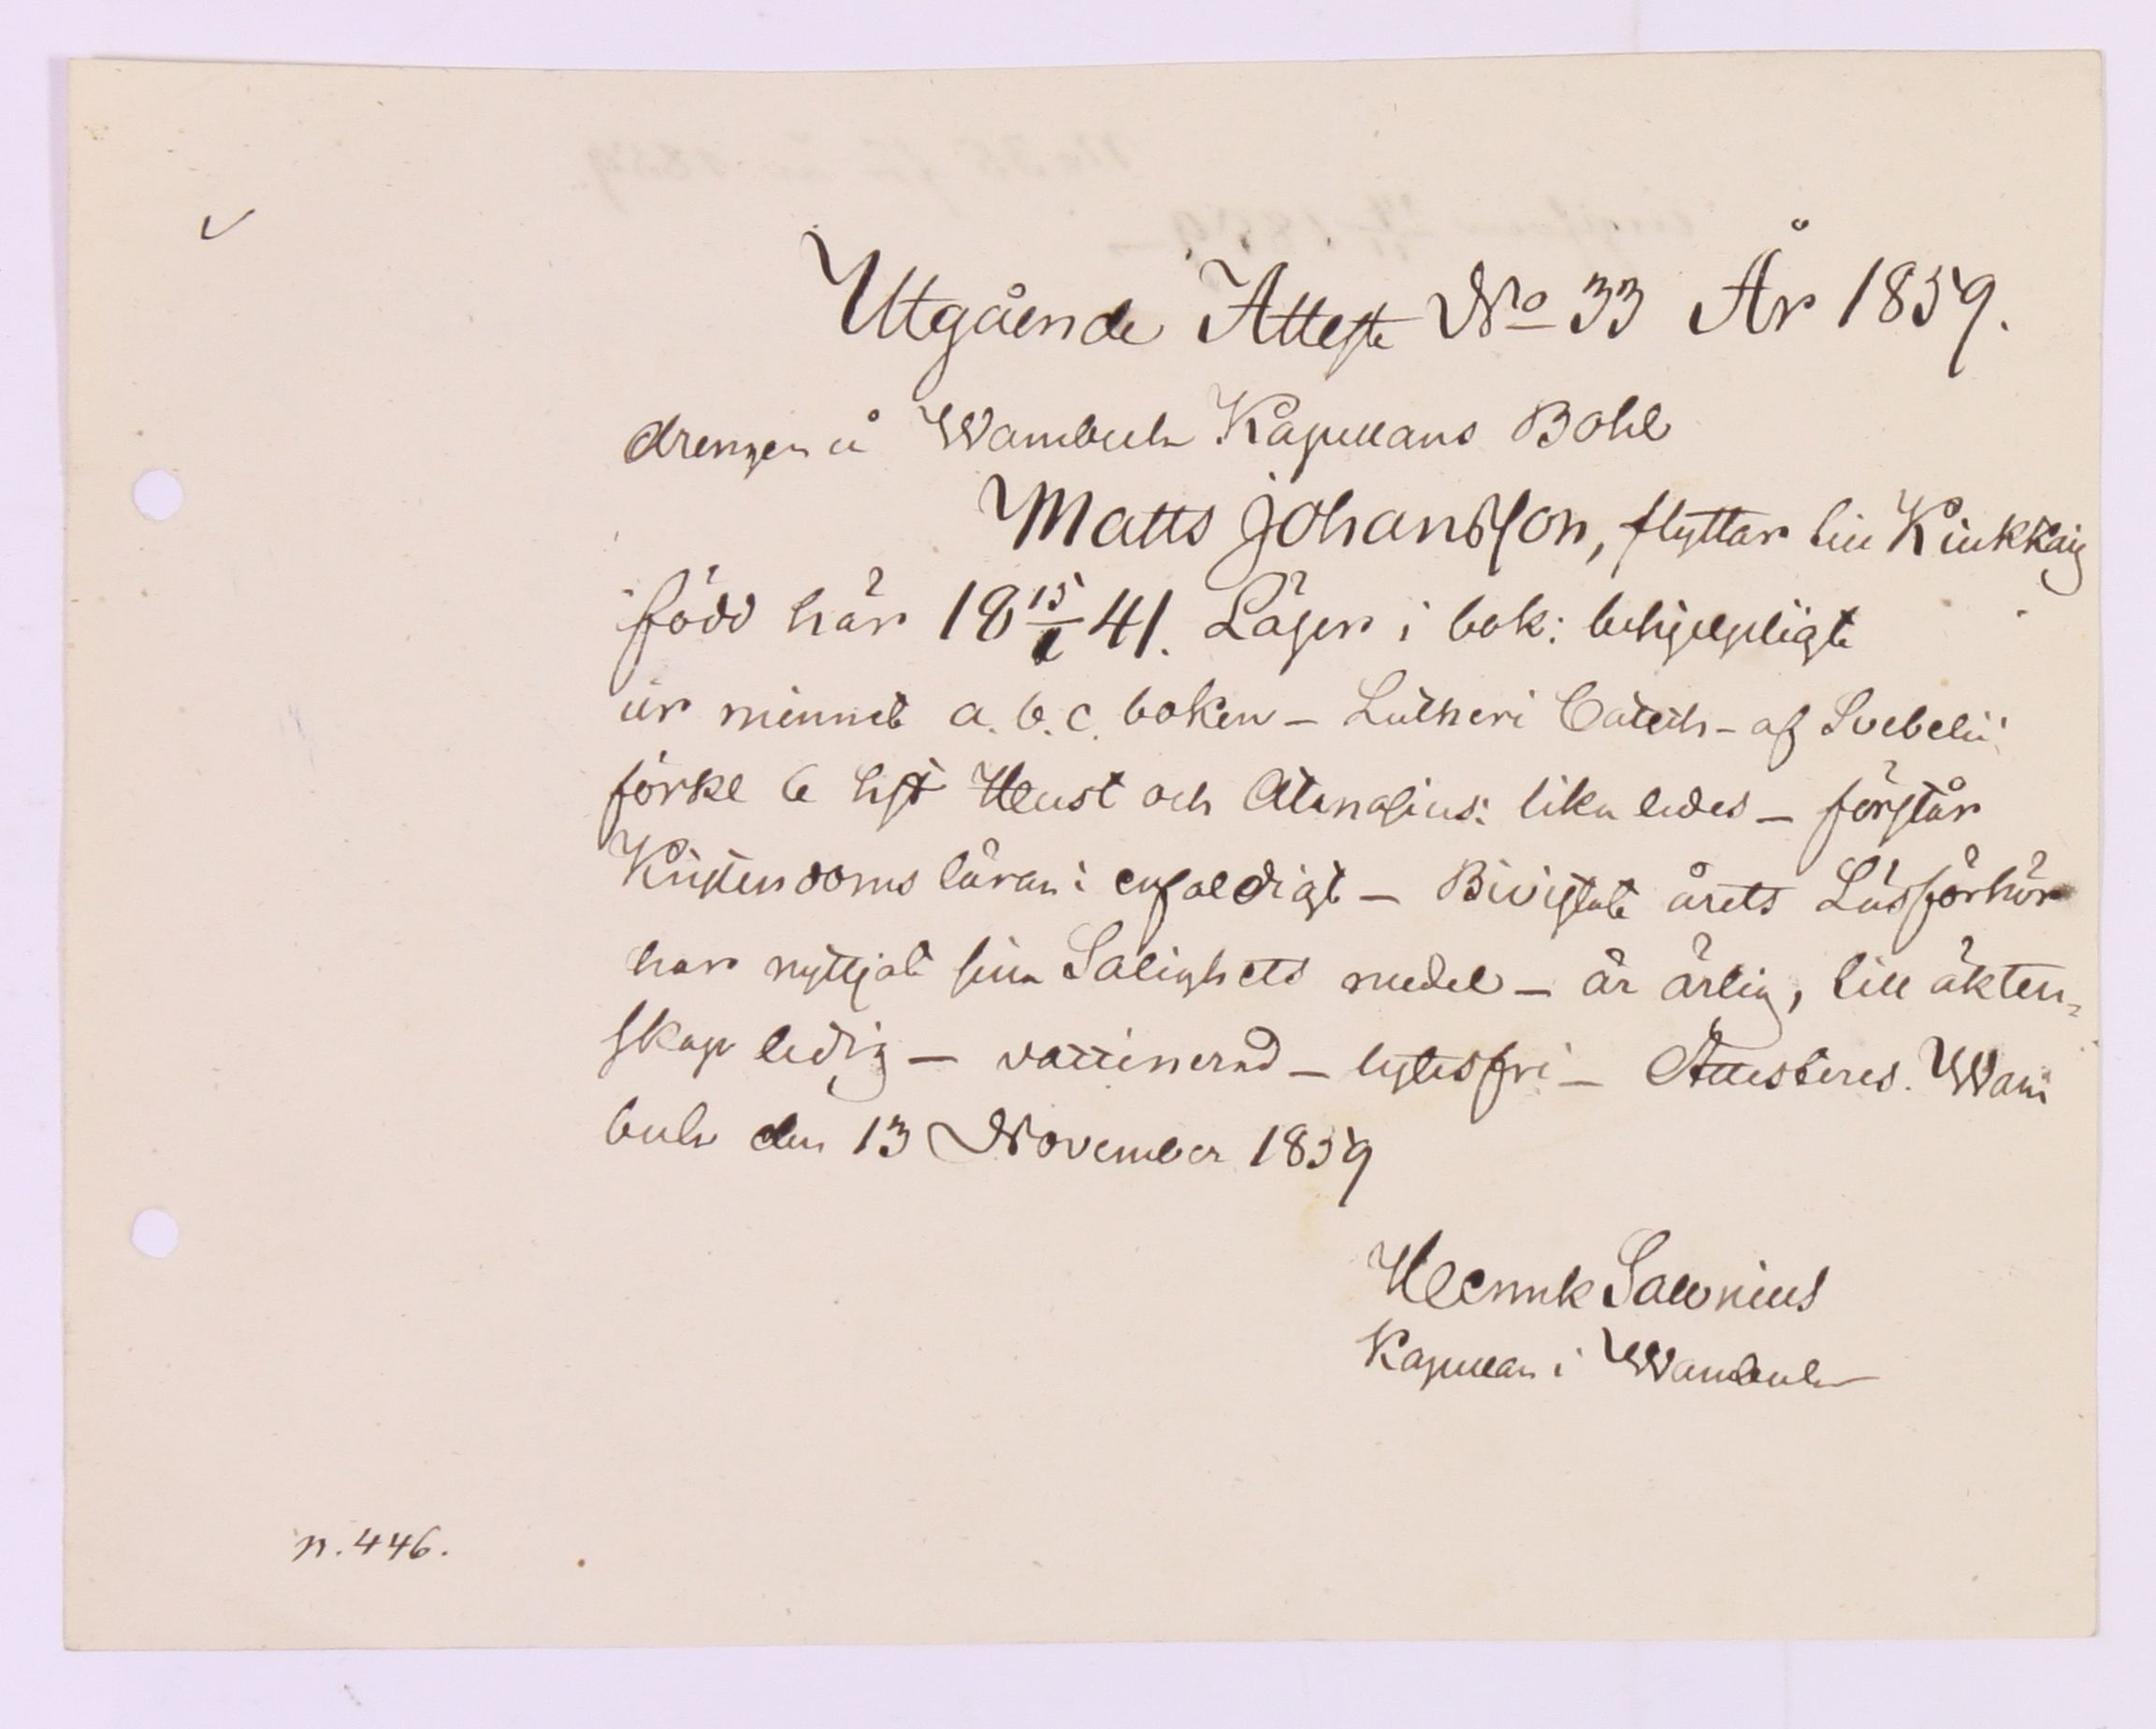 Utgående Atteste No 33 År 1859.
drengen å Wambula Kapellans Bohl
Matts Johansson, flyttar till Kiukkais
född här 18 15/1 41. Läser i bok: behjelpligt
ur minnet a.b.c. boken - Lutheri Catech - af Svebelii
förkl 6 Hust och Atanasius: lika ledes - förstår
Kristendoms läran: enfaldigt - Bivistat årets Läsförhör
har nyttjat sina Salighets medel - är ärlig, till äkten-
skap ledig - vaccinerad - lytesfri - Attesteras. Wam
bula den 13 November 1859
Henrik Salonius
Kapellan i Wambula
n. 446.